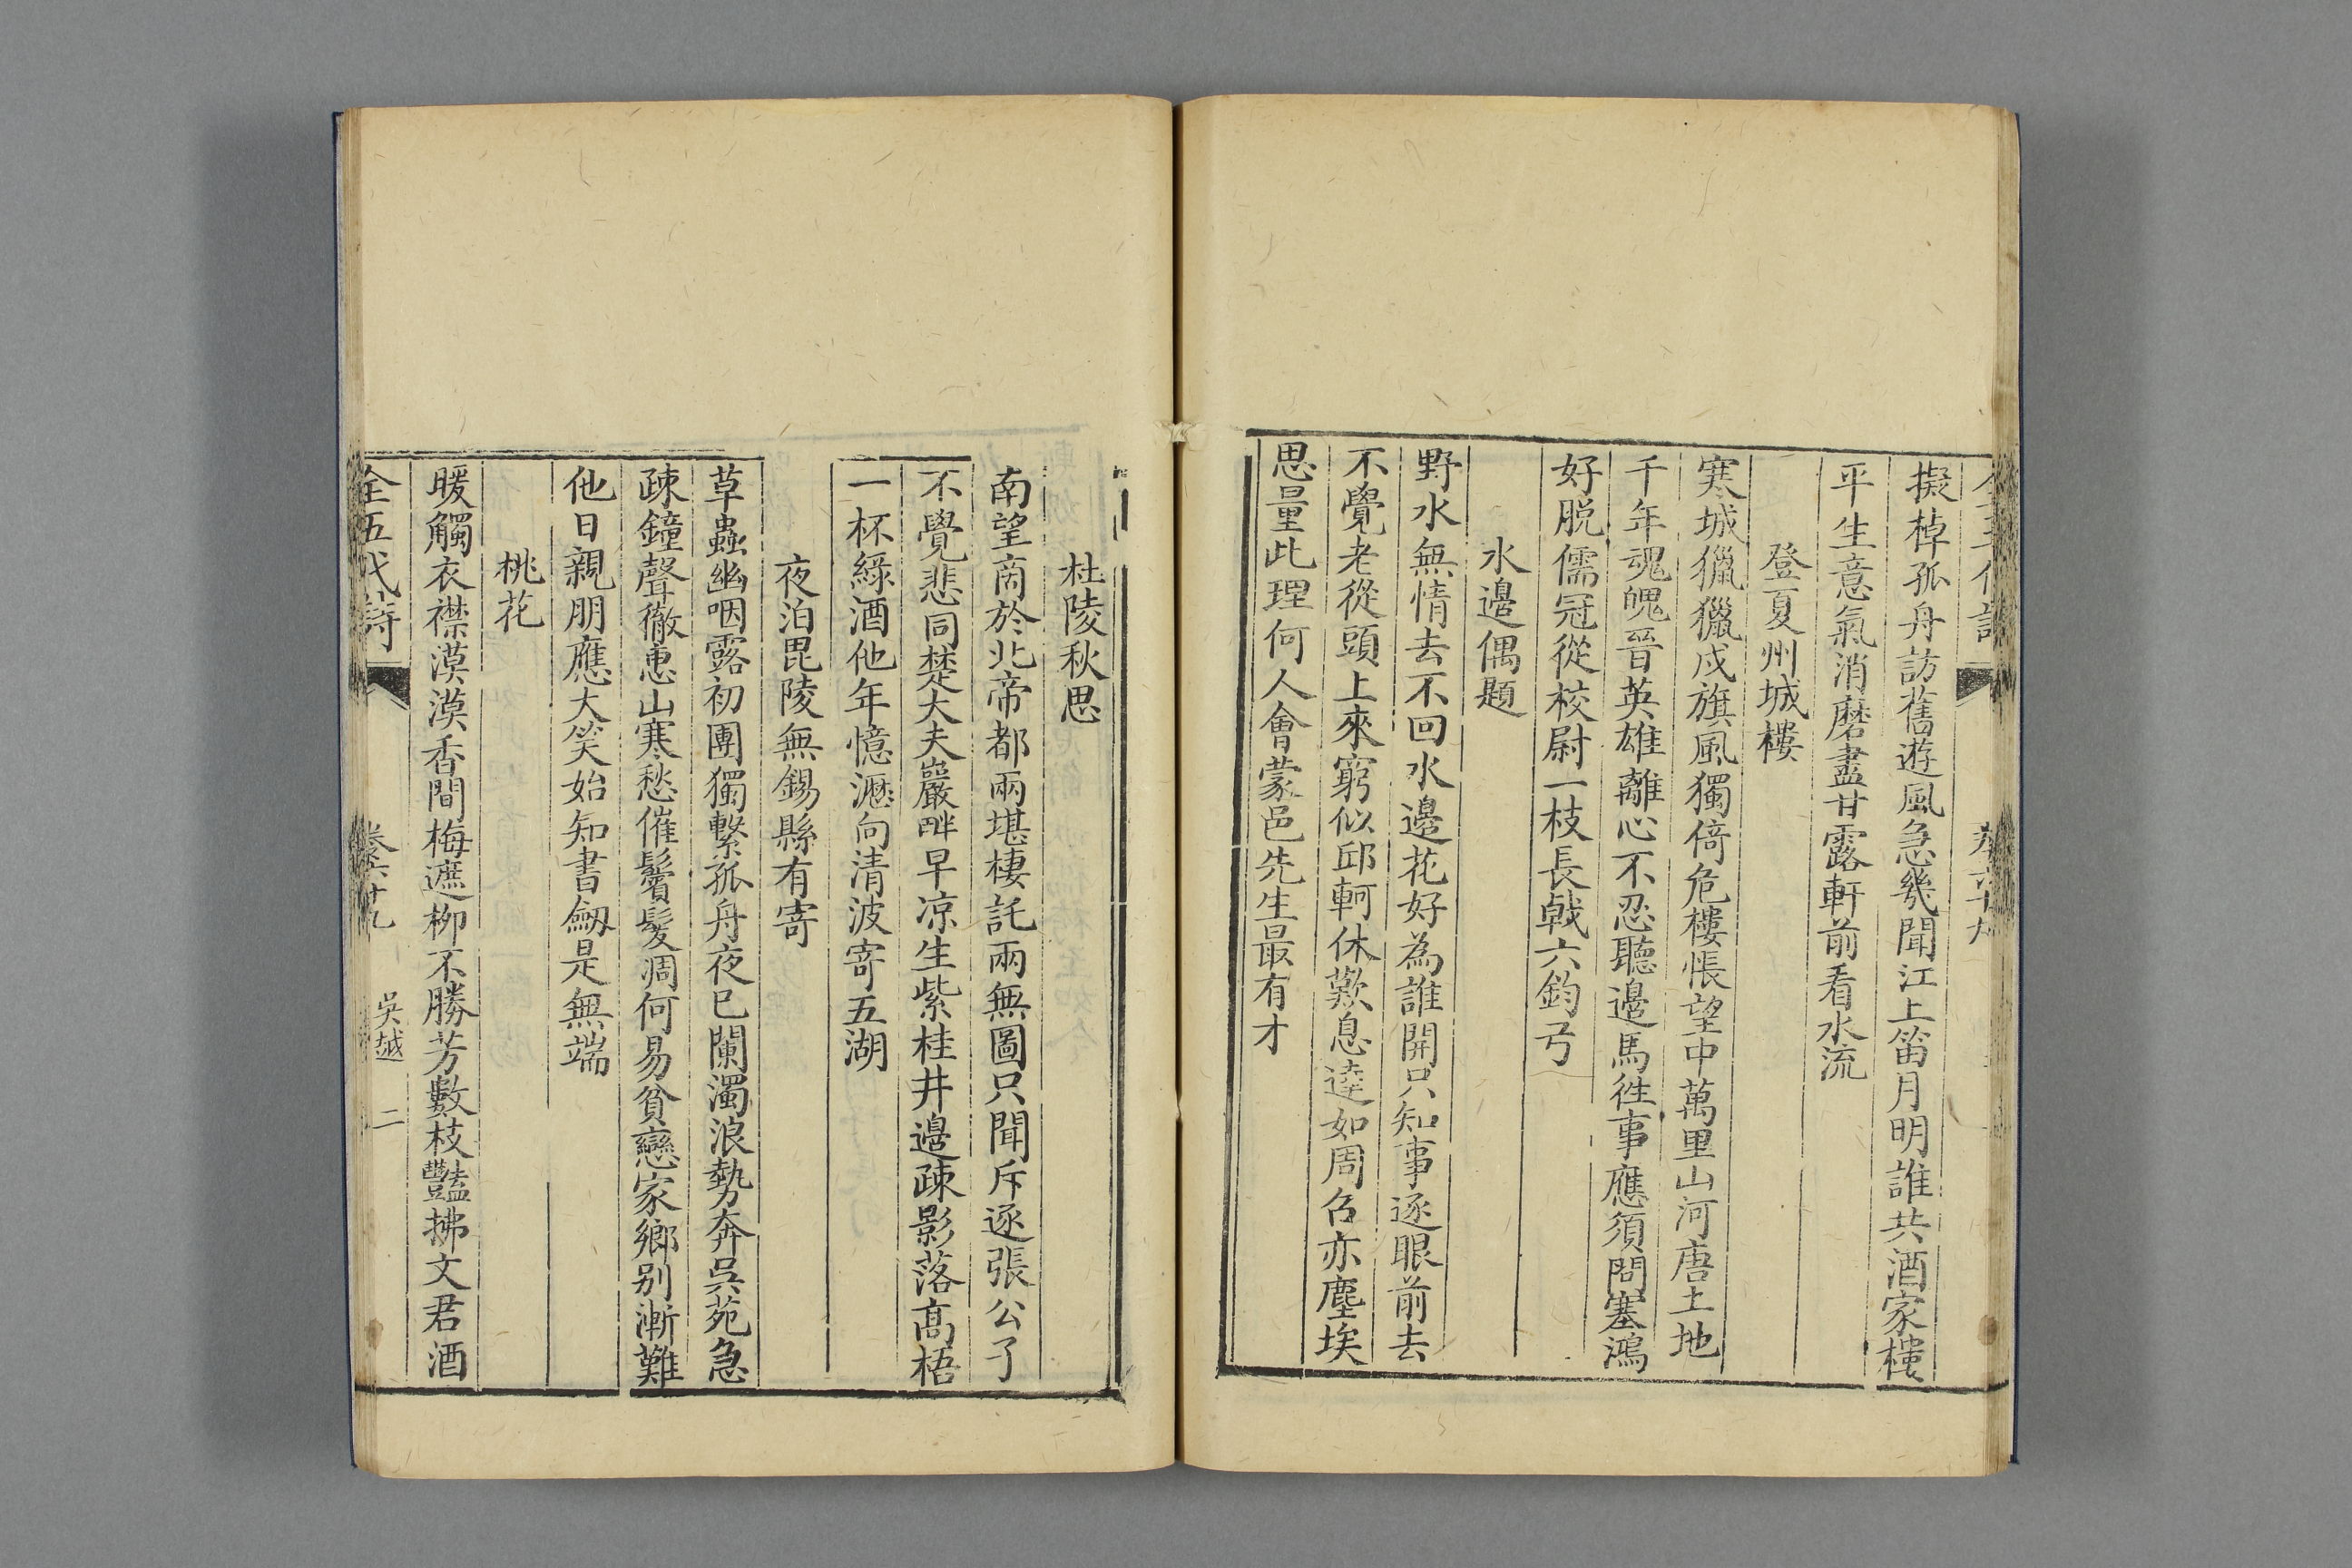 擬棹孤舟訪舊遊風急幾聞江上笛月明誰共酒家樓
平生意氣消磨盡甘露軒前看水流
登夏州城樓
寒城獵獵戍旗風獨倚危樓悵望中萬里山河唐土地
千年魂魄晉英雄離心不忍聽邊馬徃事應須問塞鴻
好脱儒冠從校尉一枝長戟六鈞弓
水邊偶題
野水無情去不回水邊花好為誰開只知事逐眼前去
不覺老從頭上來窮似邱軻休歎息達如周召亦塵埃
思量此理何人會蒙邑先生最有才
杜陵秋思
南望啇於北帝都兩堪棲託兩無圖只聞斥逐張公了
不覺悲同楚大夫巖畔早凉生紫桂井邊疎影落高梧
一杯綠酒他年憶瀝向清波寄五湖
夜泊毘陵無錫縣有寄
草蟲幽咽露初團獨繫孤舟夜已闌濁浪勢奔吳苑急
疎鐘聲徹惠山寒愁催鬢髮凋何易貧戀家鄉别漸難
他日親朋應大笑始知書劒是無端
桃花
暖觸衣襟漠漠香間梅遮柳不勝芳數枝豔拂文君酒
全五代詩
卷六十九
吳越
二